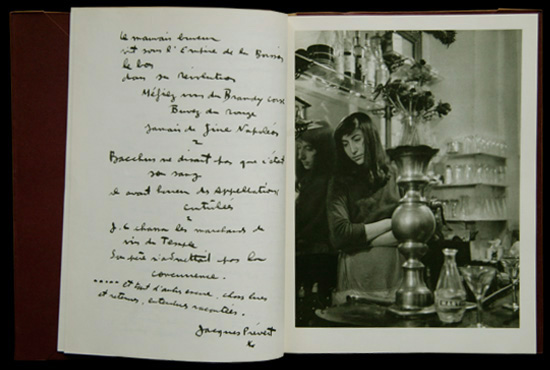 Le mauvais buveur
vit sous l'Empire de la Boisson
le bon
dans sa révolution
Méfiez vous du Brandy Corse
Buvez du rouge
Jamais de fine Napoléon
Bacchus ne disait pas que c'était
son sang
il avait horreur des Appellations
contrôlées
J.C chassa les marchands de
vin du Temple
Son père n'admettait pas la
concurrence.
..... Et tant d'autres encore, choses lues
et retenues, entendues racontées.
Jacques Prévert